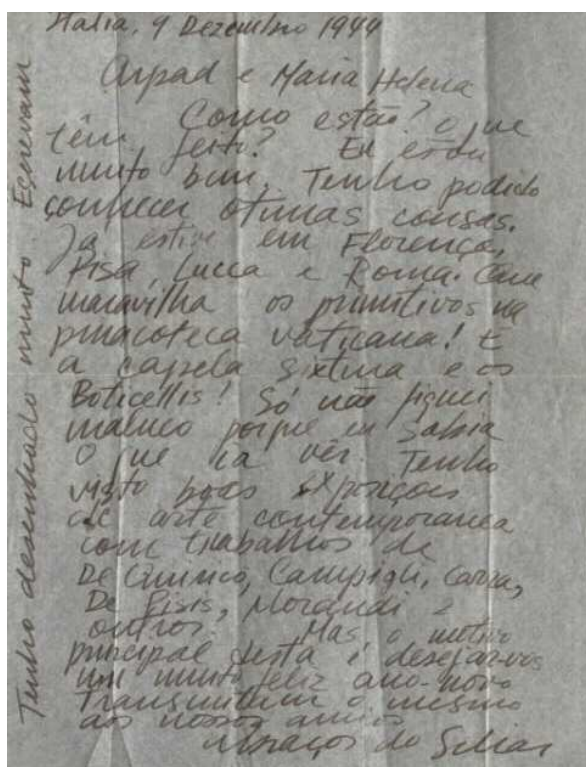 Italia, 9 Dezembro 1944
Arpad e Maria Helena
Como estão? O que
têm feito? Eu estou
muito bem. Tenho podido
conhecer otimas cousas.
Ja estive em Florença,
Pisa, Lucca e Roma. Que
maravilha os primitivos na
pinacoteca vaticana! E
a capela sixtina e os
Boticellis! Só não fiquei
maluco porque eu sabia
o que ia vêr. Tenho
visto boas exposições
de arte contemporanea
com trabalhos de
De Chirico, Campigli, Carra,
De Pisis, Morandi e
outros. Mas o motivo
principal desta é desejar-vos
um muito feliz ano-novo
Transmitem o mesmo
aos nossos amigos
Abraços do Scliar
Tenho desenhado muito. Escrevam